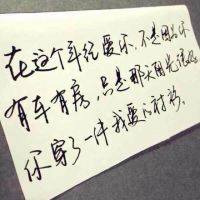 在这个年纪爱你，不是因为你
有车有房，只是那天阳光很好，
你穿了一件我爱的衬衫。